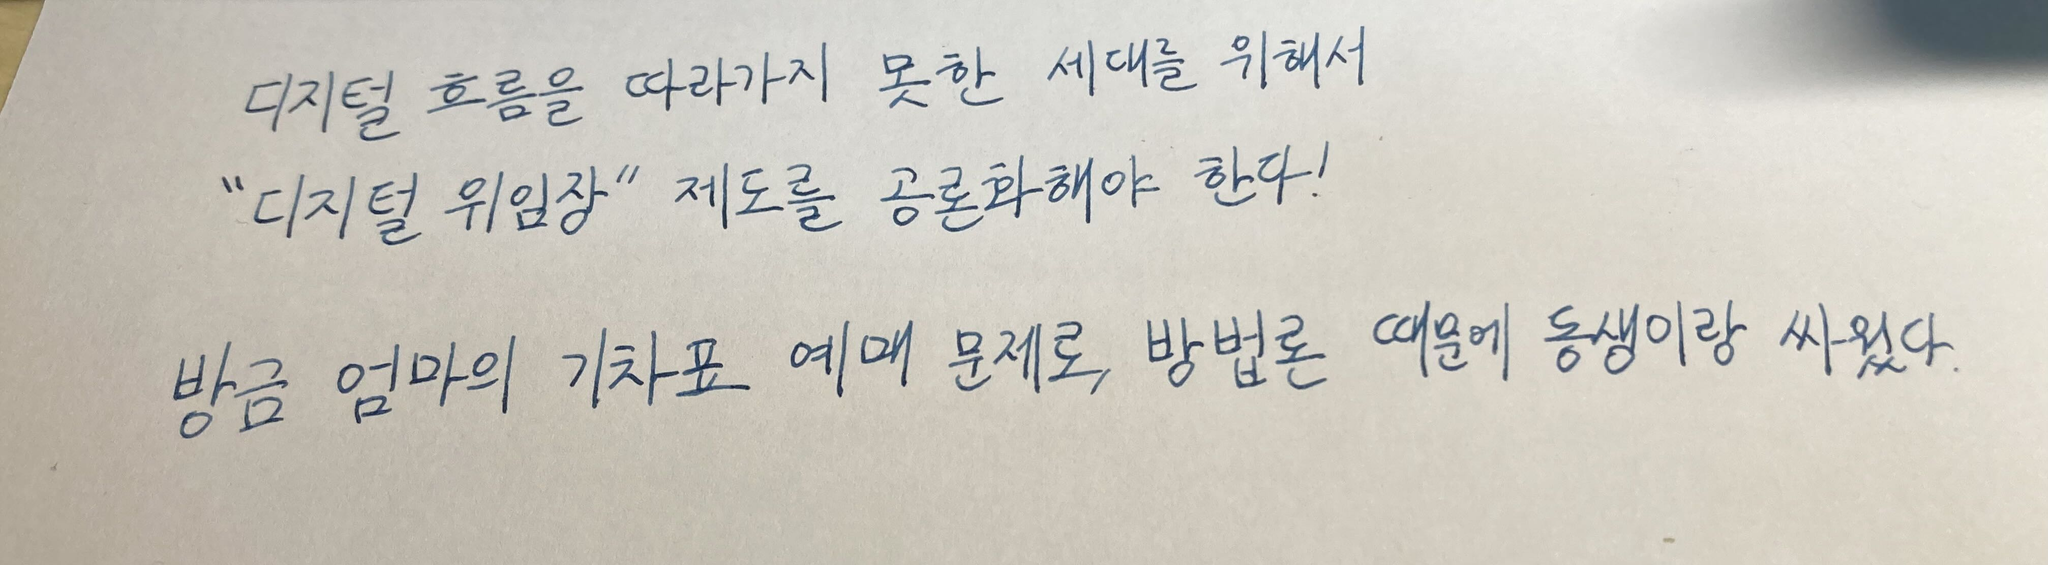 디지털 흐름을 따라가지 못한 세대를 위해서
"디지털 위임장" 제도를 공론화해야 한다!
방금 엄마의 기차표 예매 문제로, 방법론 때문에 동생이랑 싸웠다.